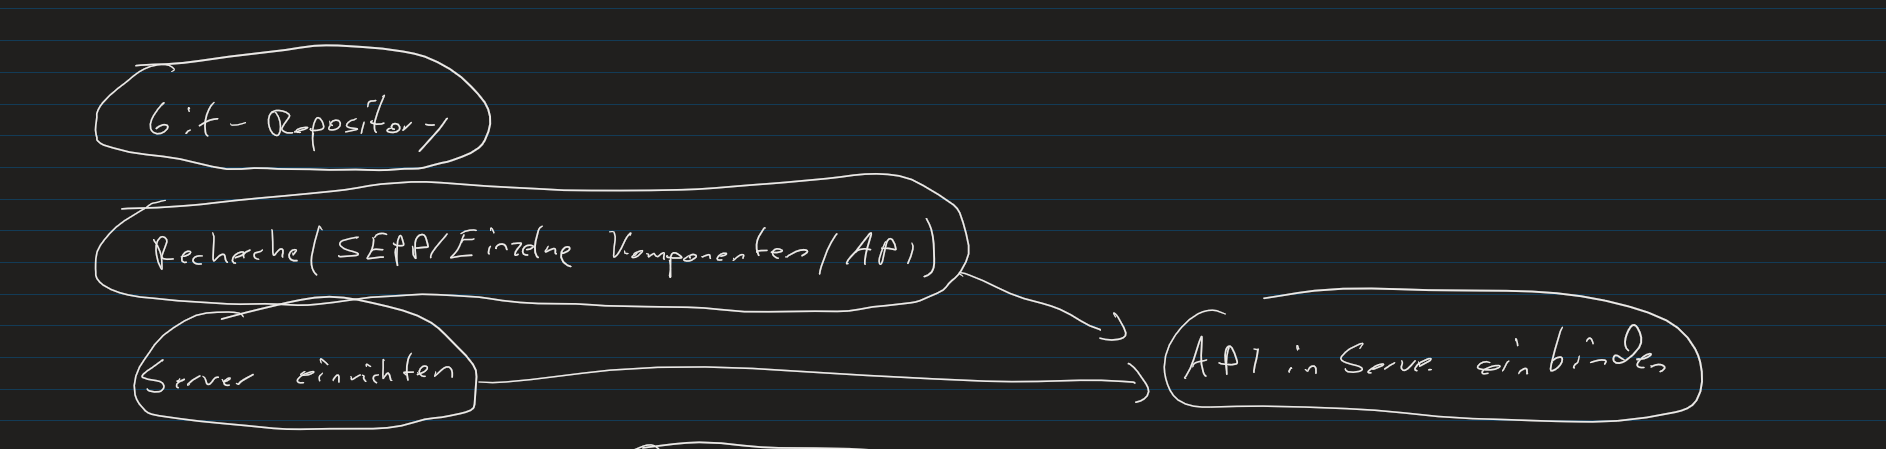 Git-Repository
Recherche (SEPP/Einzelne Komponenten/API)
Server einrichten
API in Server einbinden